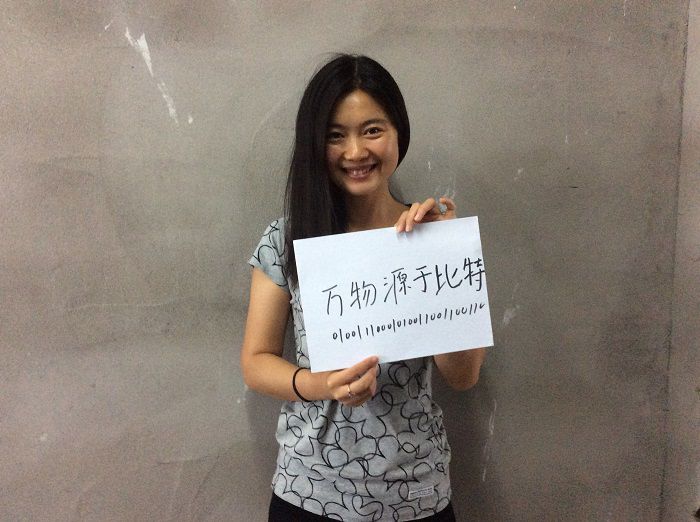 万物源于比特
010011100010100110011001110